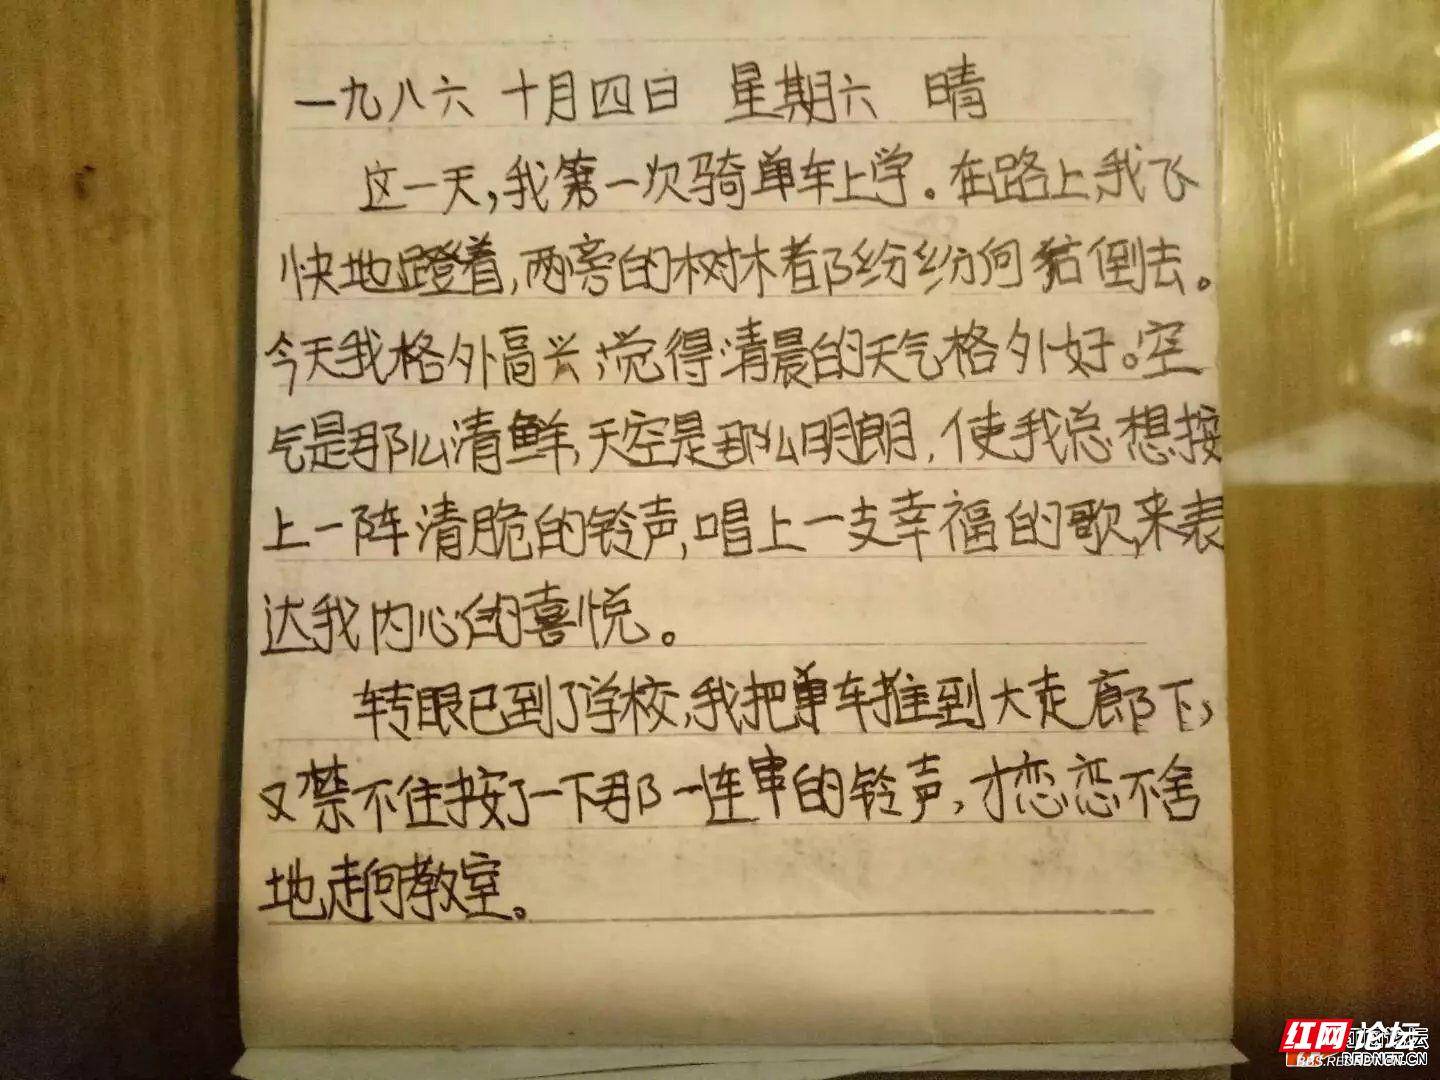 一九八六 十月四日 星期六 晴
这一天,我第一次骑单车上学。在路上,我飞
快地蹬着,两旁的树木都纷纷向后倒去。
今天我格外高兴,觉得清晨的天气格外好。空
气是那么清鲜,天空是那么明朗,使我总想按
上一阵清脆的铃声,唱上一支幸福的歌,来表
达我内心的喜悦。
转眼已到了学校,我把单车推到大走廊下,
又禁不住按了一下那一连串的铃声,才恋恋不舍
地走向教室。
红网论坛
BBS.REDNET.CN
REDNET.CN